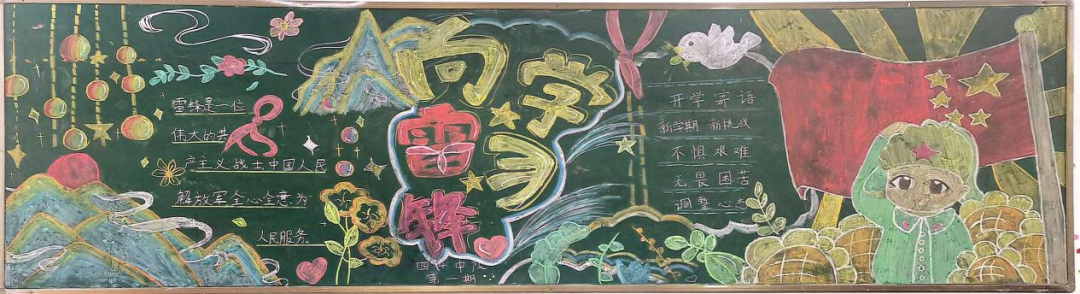 雷锋是一位
伟大的共
产主义战士中国人民
解放军全心全意为
人民服务。
向
学习
雷锋
第一期
开学寄语
新学期 新挑战
不惧艰难
无畏困苦
调整心态